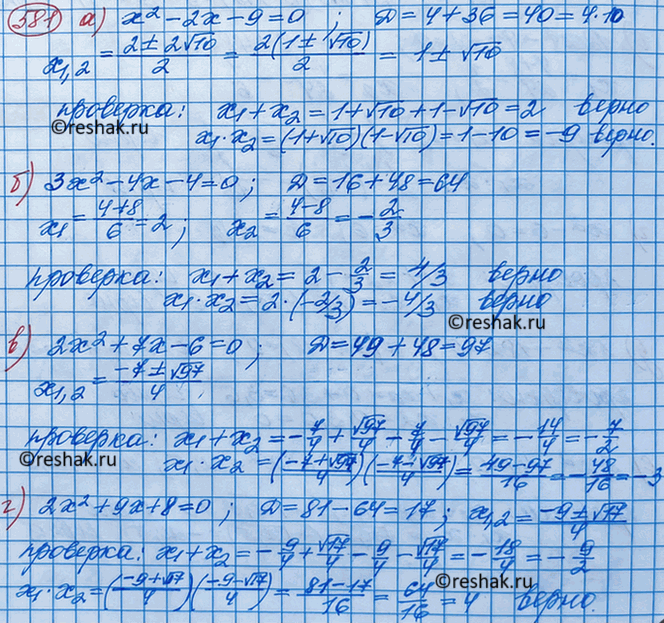 581 а) x² - 2x - 9 = 0 ; D = 4 + 36 = 40 = 4·10
x₁,₂ = (2 ± 2√10)/2 = 2(1 ± √10)/2 = 1 ± √10
проверка: x₁ + x₂ = 1 + √10 + 1 - √10 = 2 верно
©reshak.ru
x₁ · x₂ = (1 + √10)(1 - √10) = 1 - 10 = -9 верно.
©reshak.ru
б) 3x² - 4x - 4 = 0 ; D = 16 + 48 = 64
x₁ = (4+8)/6 = 2 ; x₂ = (4-8)/6 = -2/3
проверка: x₁ + x₂ = 2 - 2/3 = 4/3 верно
x₁ · x₂ = 2 · (-2/3) = -4/3 верно
©reshak.ru
в) 2x² + 7x - 6 = 0 ; D = 49 + 48 = 97
x₁,₂ = (-7 ± √97)/4
проверка: x₁ + x₂ = -7/4 + √97/4 - 7/4 - √97/4 = -14/4 = -7/2
©reshak.ru
x₁ · x₂ = ((-7+√97)/4)((-7-√97)/4) = (49-97)/16 = -48/16 = -3
г) 2x² + 9x + 8 = 0 ; D = 81 - 64 = 17 ; x₁,₂ = (-9 ± √17)/4
проверка: x₁ + x₂ = -9/4 + √17/4 - 9/4 - √17/4 = -18/4 = -9/2
x₁ · x₂ = ((-9+√17)/4)((-9-√17)/4) = (81-17)/16 = 64/16 = 4 верно.
©reshak.ru